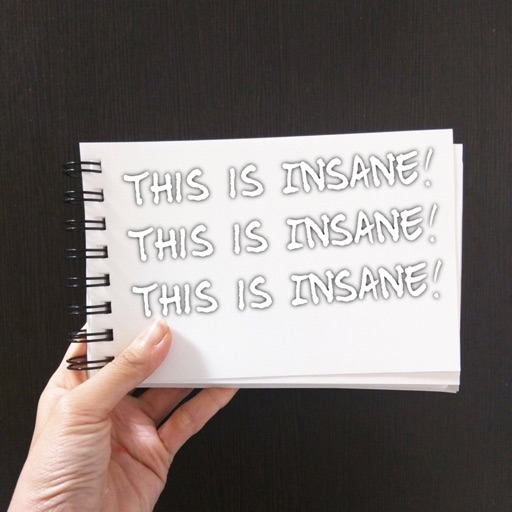 THIS IS INSANE!
THIS IS INSANE!
THIS IS INSANE!